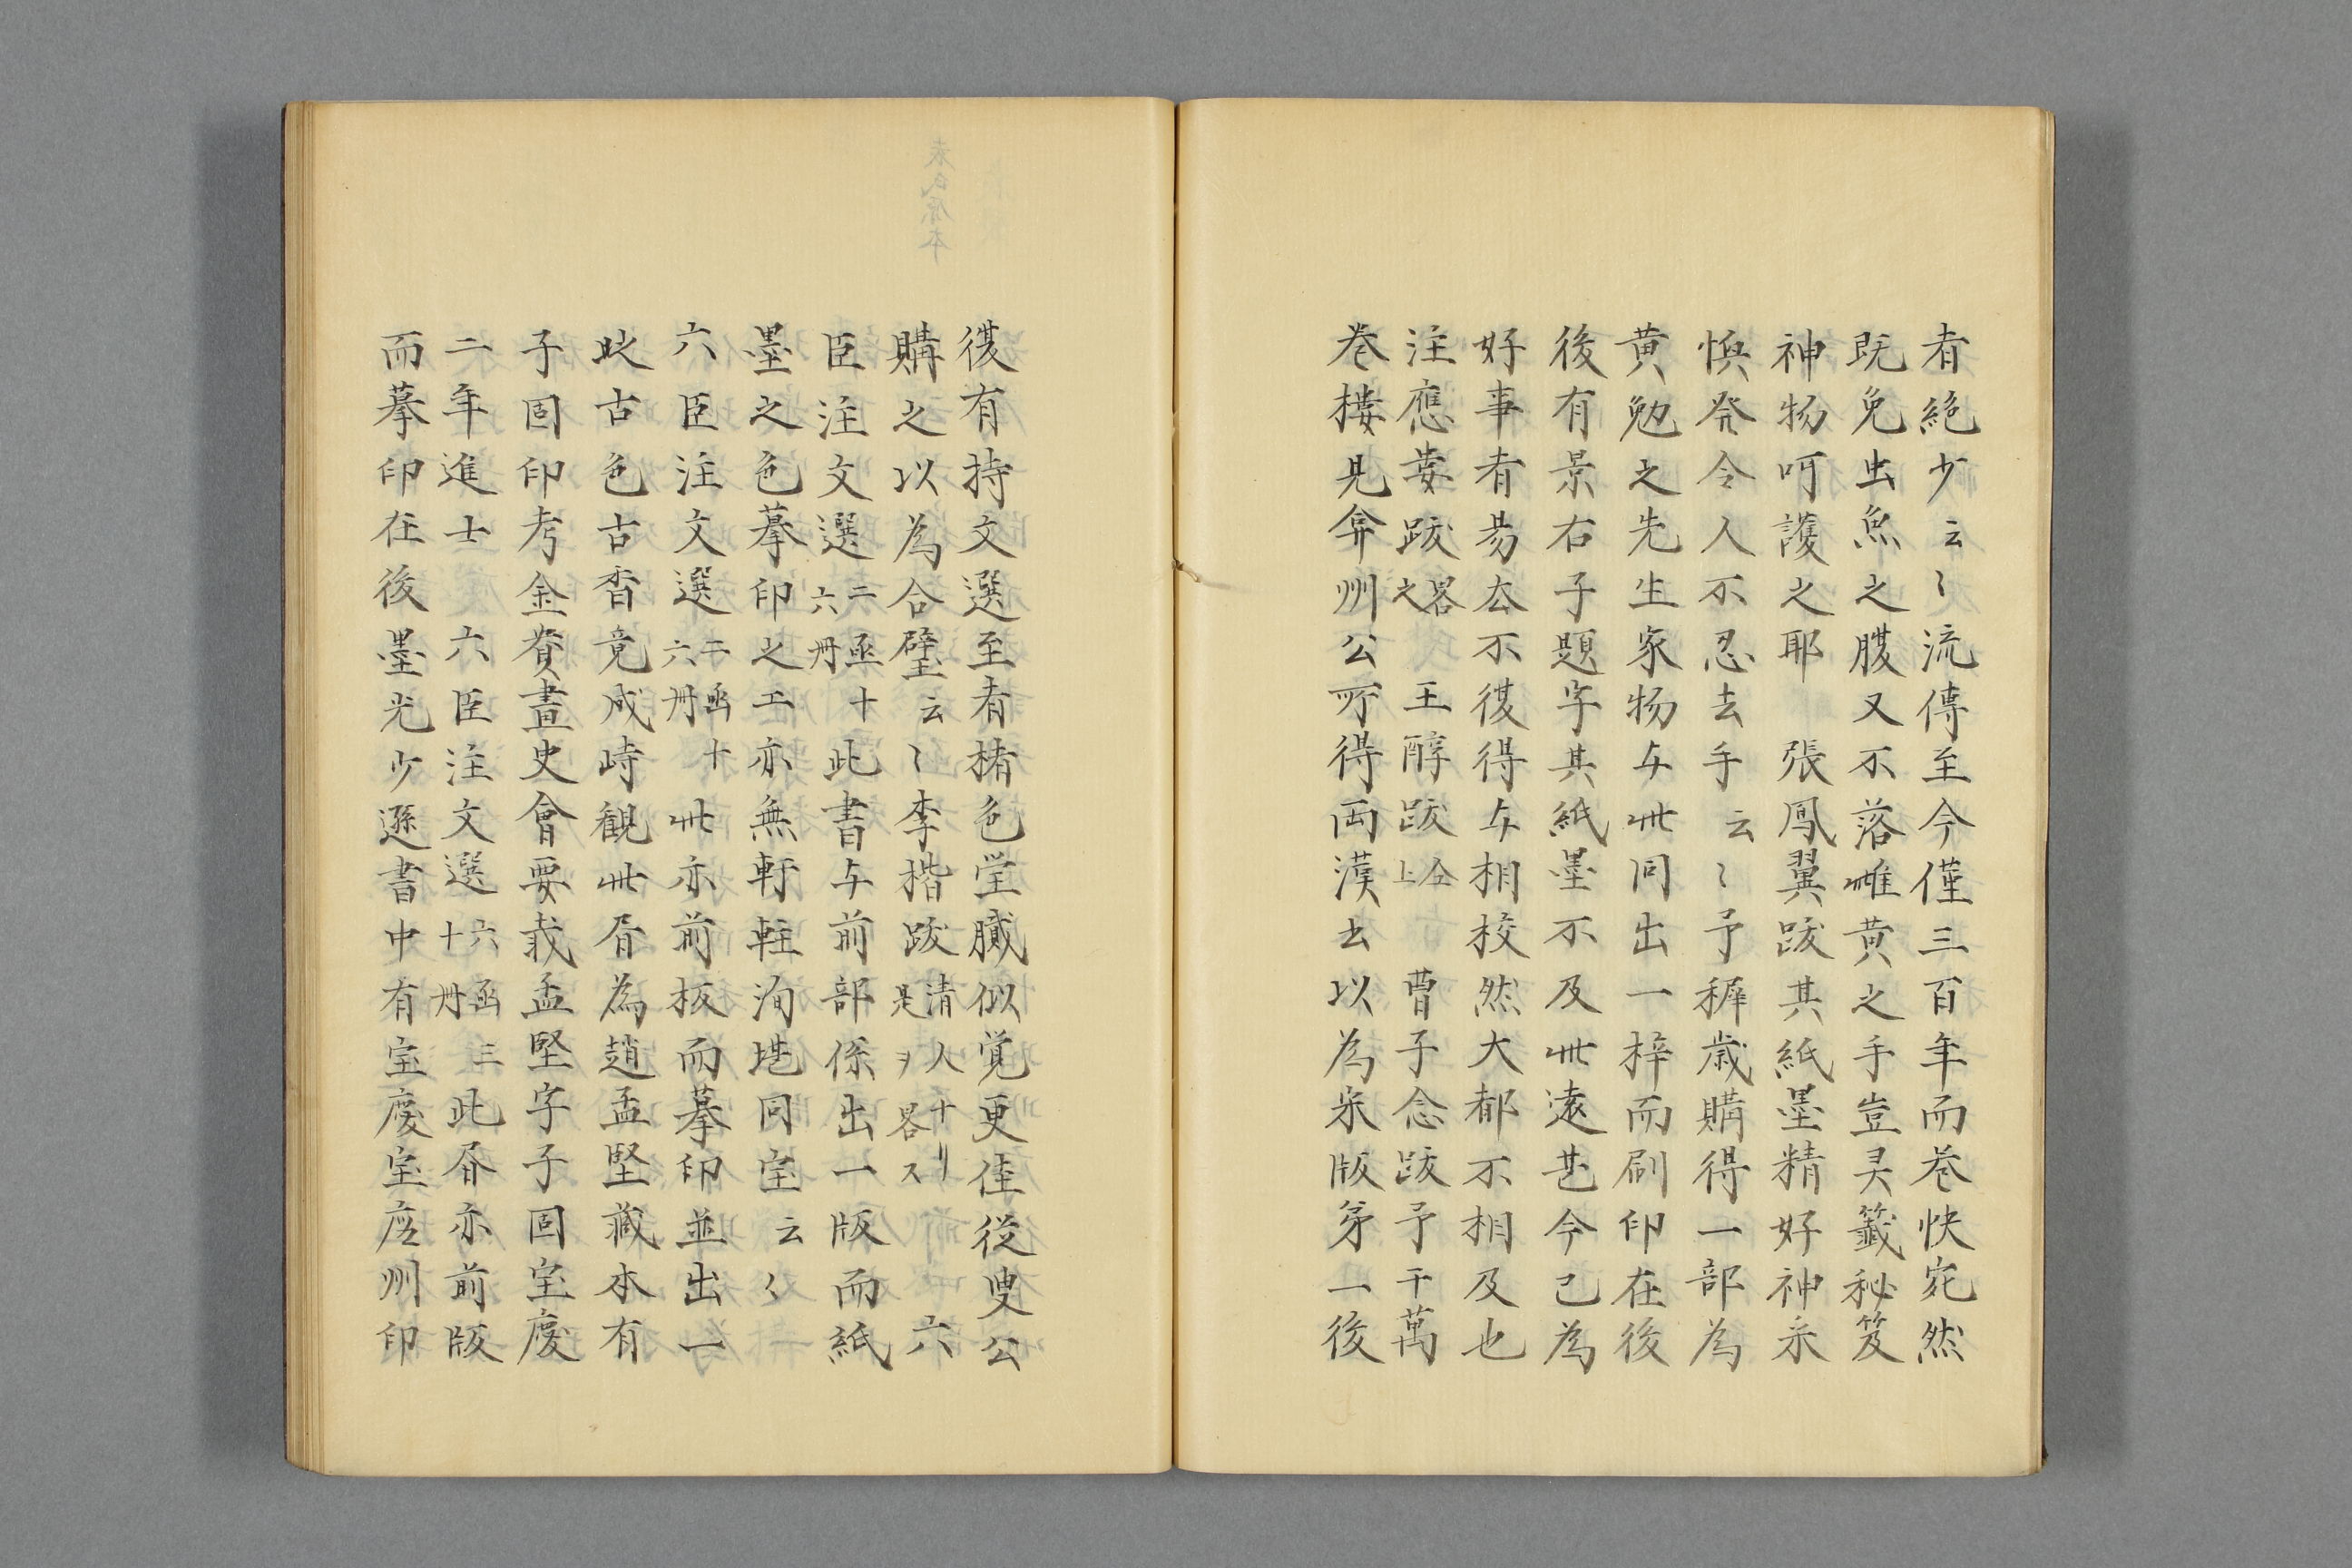 者絶少云〻流傳至今僅三百年而巻快宛然
既免虫魚之腹又不落雌黄之手豈灵籤秘笈
神物呵護之耶 張鳳翼跋其紙墨精好神采
煥発令人不忍去手云〻予稺歳購得一部為
黄勉之先生家物与此同出一梓而刷印在後
後有景右子題字其紙墨不及此遠甚今已為
好事者易去不復得与相校然大都不相及也
注應婁跋畧之 王醇跋仝上 曹子念跋予千萬
巻楼見弇州公所得両漢去以為宋版第一後
復有持文選至者楮色瑩膩似覚更佳従叟公
購之以為合璧云〻李楷跋清人ナリ是ヲ畧ス 六
臣注文選二函十六冊 此書与前部係出一版而紙
墨之色摹印之工亦無軒輊洵堪同宝云〻
六臣注文選二函十六冊 此亦前板而摹印並出一
時古色古香竟成峙観此帋為趙孟堅藏本有
子固印考金賚畫史會要載孟堅字子固宝慶
二年進士 六臣注文選六函三十冊 此帋亦前版
而摹印在後墨光少遜書中有宝慶宝應州印